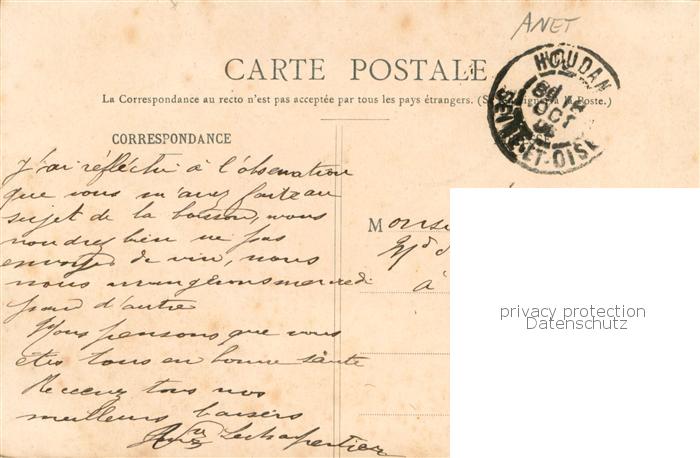 ANET
HOUDAN
OCT
SEINE-ET-OISE
CARTE POSTALE
La Correspondance au recto n'est pas acceptée par tous les pays étrangers. (Se renseigner à la Poste.)
CORRESPONDANCE
J'ai réfléchi à l'observation
que vous m'avez faite au
sujet de la boisson, vous
voudrez bien ne pas
envoyer de vin, nous
nous arrangerons mercredi
pour d'autre
Nous pensons que vous
êtes tous en bonne sante
Recevez tous nos
meilleurs baisers
Lecharpentier
Monsi
à
privacy protection
Datenschutz